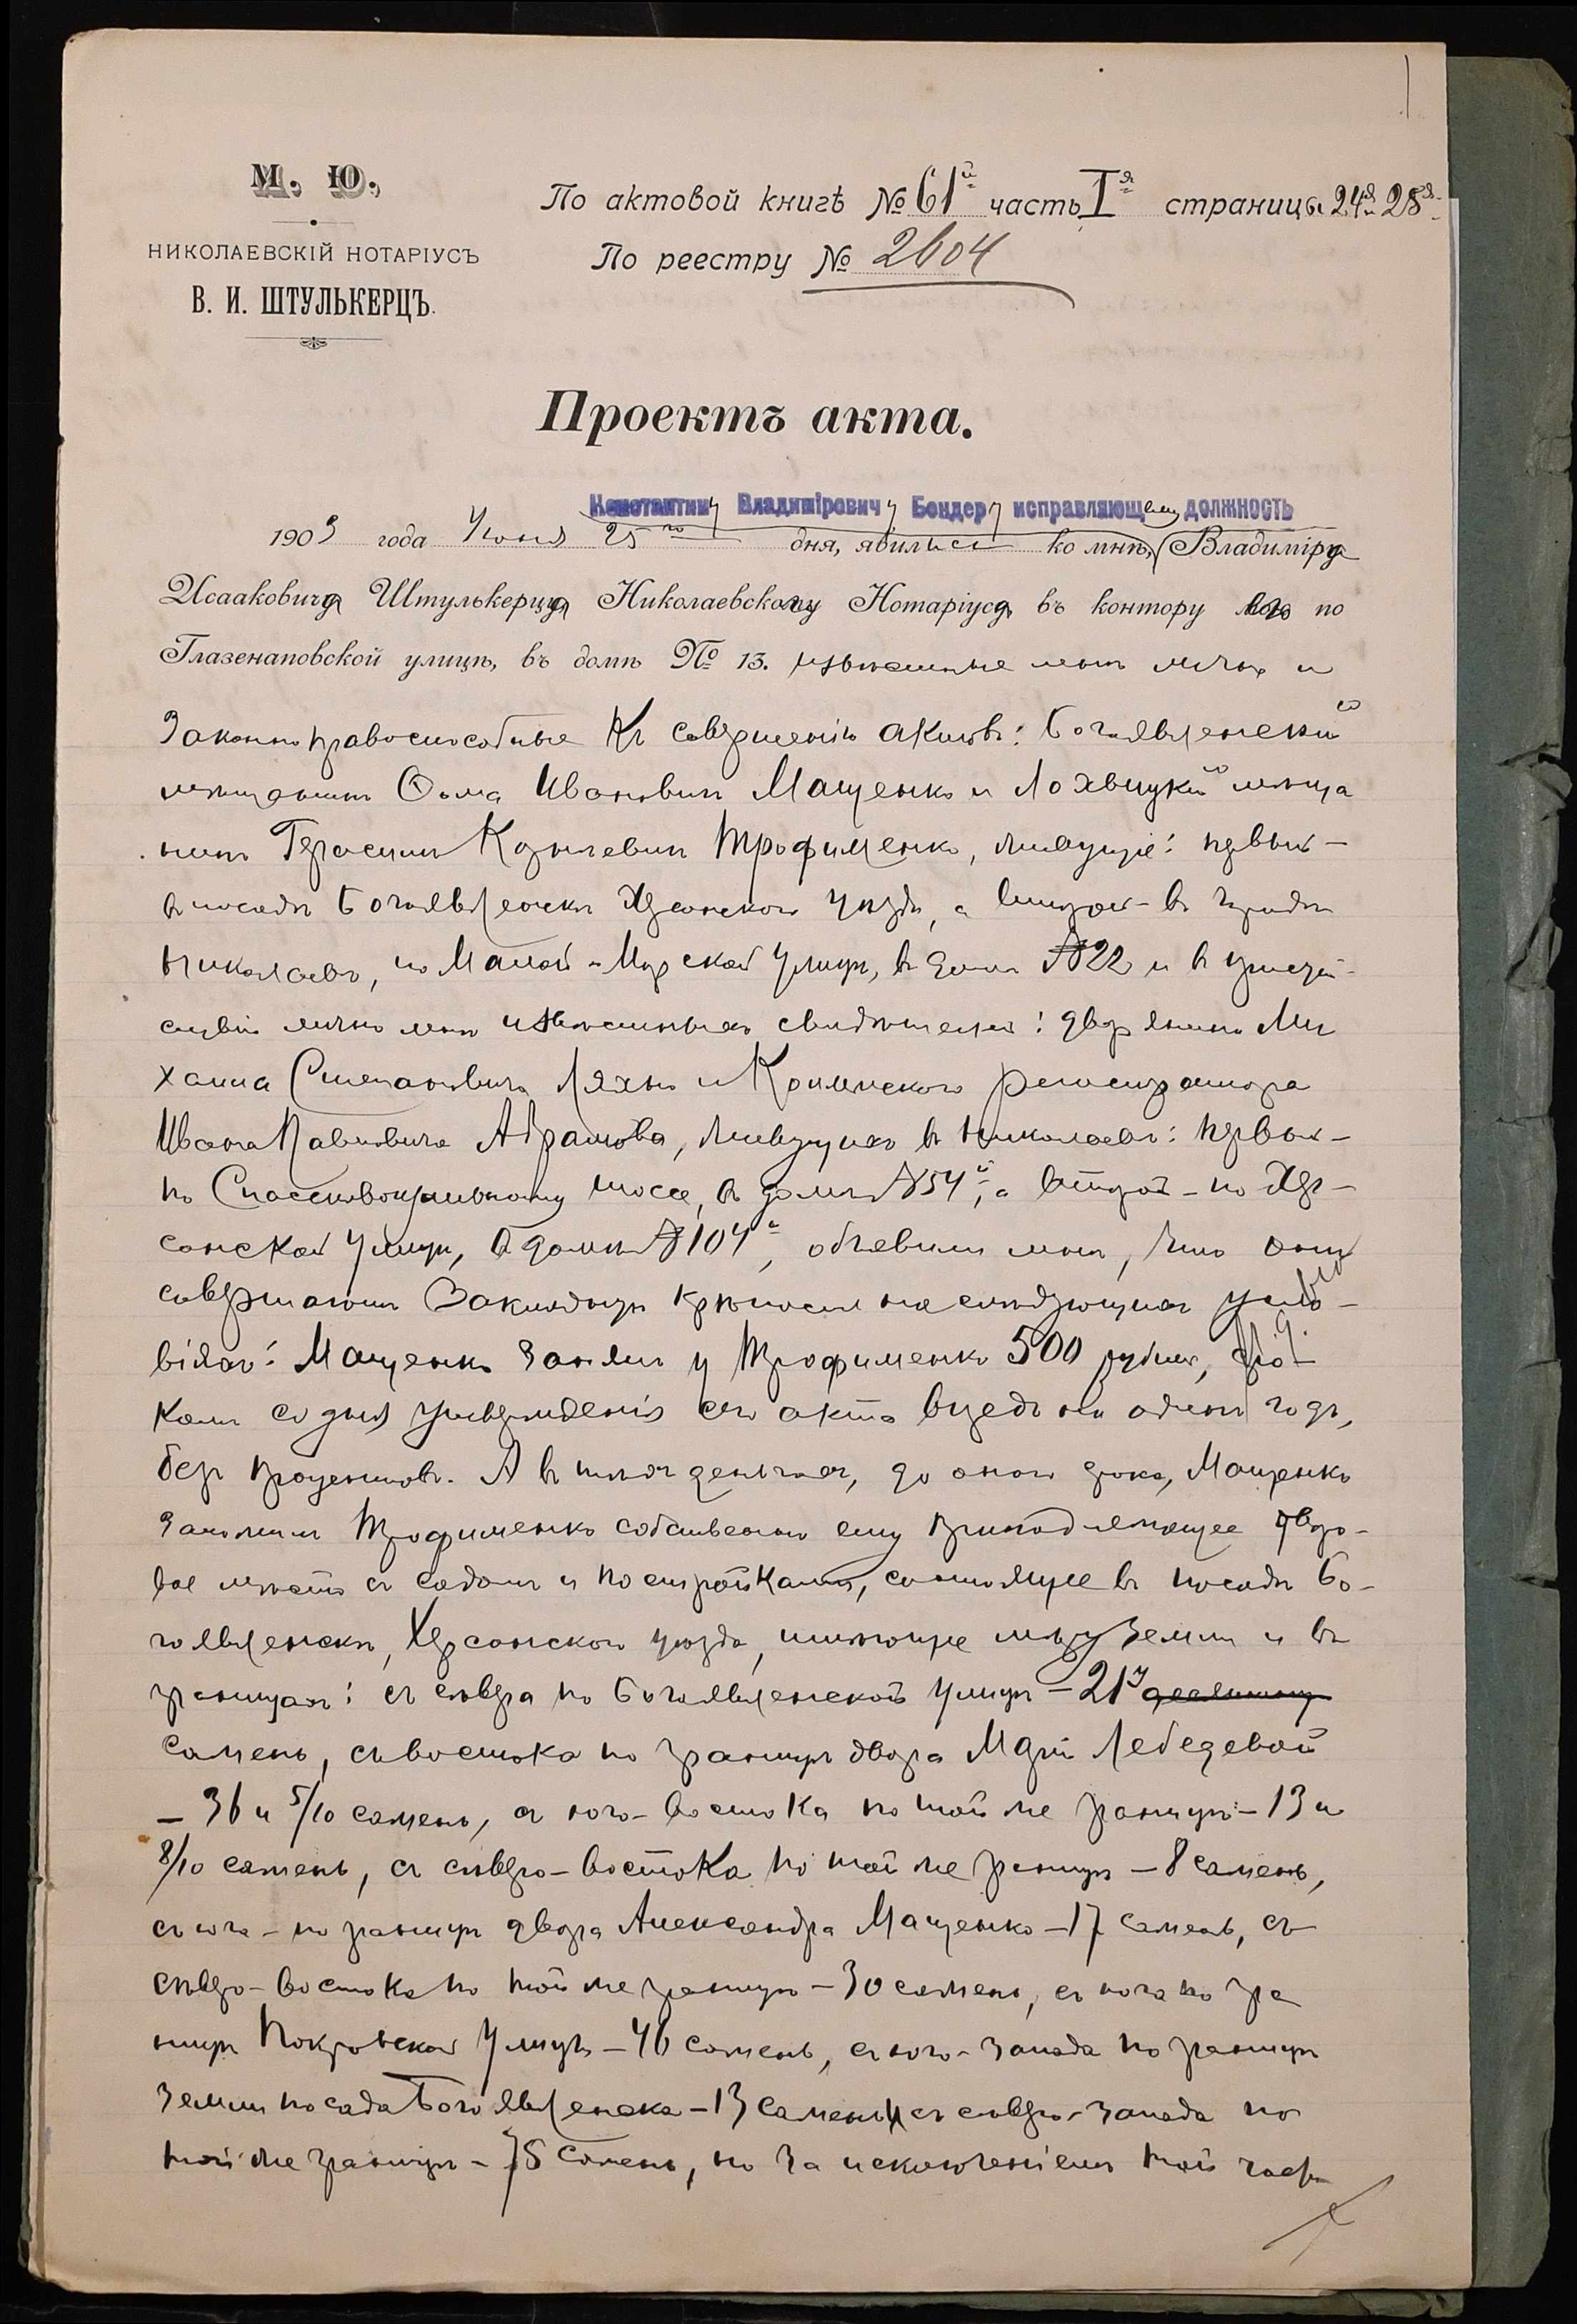 М. Ю.
НИКОЛАЕВСКІЙ НОТАРІУСЪ
В. И. ШТУЛЬКЕРЦЪ.
По актовой книгѣ № 61й часть Iя страницы 24я 28я
По реестру № 2604
Проектъ акта.
Константину Владиміровичу Бондеру исправляющему должность
1903 года Іюня 25го дня, явились ко мнѣ, Владиміра
Исааковича Штулькерца Николаевскаго Нотаріуса, въ контору его по
Глазенаповской улицѣ, въ домѣ № 13. извѣстные мнѣ лично и
законно правоспособные къ совершенію актовъ: Богоявленскій
мѣщанинъ Ѳома Ивановичъ Мащенко и Лохвицкій мѣща
нинъ Герасимъ Трофименко, живущіе: первый –
въ посадѣ Богоявленскѣ Херсонскаго уѣзда, а второй – въ городѣ
Николаевѣ, по Малой-Морской улицѣ, въ домѣ № 22 и въ присут-
ствіи лично мнѣ извѣстныхъ свидѣтелей: дворянина Ми
хаила Степановича Ляхно и Коллежскаго регистратора
Ивана Павловича Абрамова, живущихъ въ Николаевѣ: первый –
по шоссе, въ домѣ № 54й, а второй – по Хер-
сонской улицѣ, въ домѣ № 104й, объявили мнѣ, что они
совершаютъ закладную крѣпость на слѣдующихъ усло-
віяхъ: Мащенко занялъ у Трофименко 500 рублей, сро-
комъ со дня утвержденія сего акта впредь на одинъ годъ,
безъ процентовъ. А въ тѣхъ деньгахъ, до онаго срока, Мащенко
заложилъ Трофименко собственно ему принадлежащее дворо-
вое мѣсто съ садомъ и постройками, состоящее въ посадѣ Бо-
гоявленскѣ, Херсонскаго уѣзда, имѣющее мѣру земли и въ
границахъ: съ сѣвера по Богоявленской улицѣ – 21у десятину
сажень, съ востока по границѣ двора Маріи Лебедевой
– 36 и 5/10 сажень, съ юго-востока по той же границѣ – 13 и
8/10 сажень, съ сѣверо-востока по той же границѣ – 8 сажень,
съ юга – по границѣ двора Александра Мащенко – 17 сажень, съ
сѣверо-востока по той же границѣ – 30 сажень, съ юга по гра
ницѣ Покровской улицы – 46 сажень, съ юго-запада по границѣ
земли посада Богоявленска – 13 сажень и съ сѣверо-запада по
той же границѣ – 78 сажень, но за исключеніемъ той части